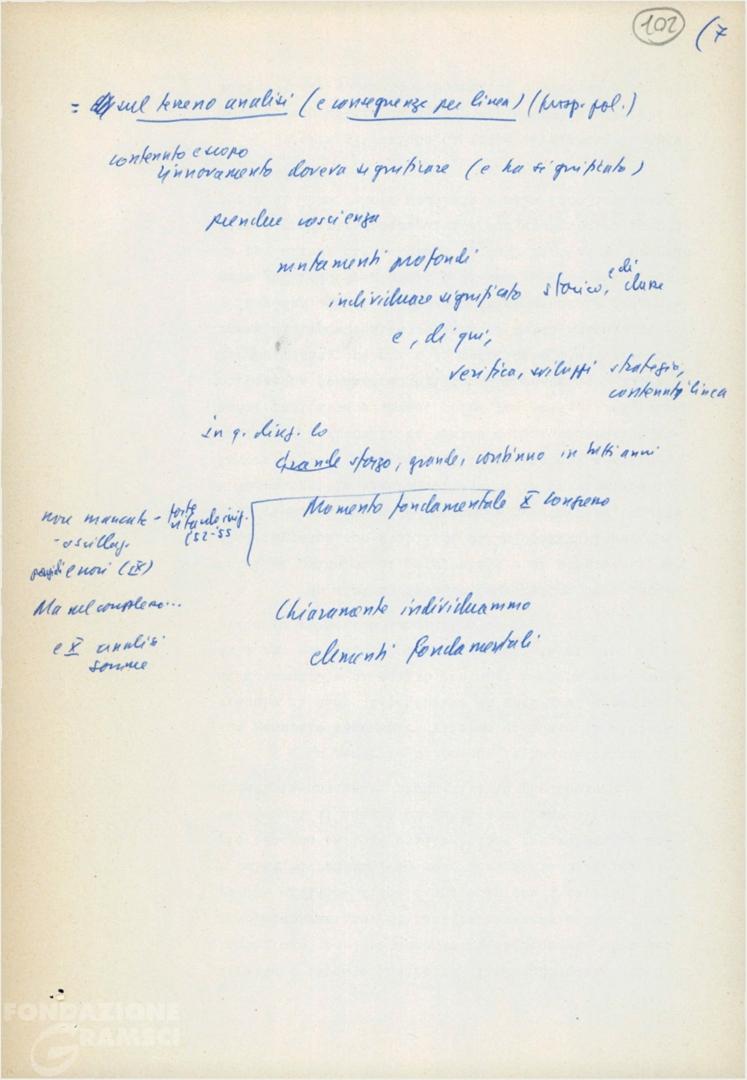 102 (7
= sul terreno analisi (e conseguenze per linea) (prosp. pol.)
contenuto e scopo
rinnovamento doveva significare (e ha significato)
prendere coscienza
mutamenti profondi
individuare significato storico, e di classe
e, di qui,
verifica, sviluppi strategia,
contenuti linea
in q. direz. lo
Grande sforzo, grande, continuo in tutti anni
Momento fondamentale X congresso
non mancate - forte
- oscillaz.
(52-55
e nori (IX)
Ma nel complesso...
Chiaramente individuammo
e X analisi
elementi fondamentali
FONDAZIONE
GRAMSCI